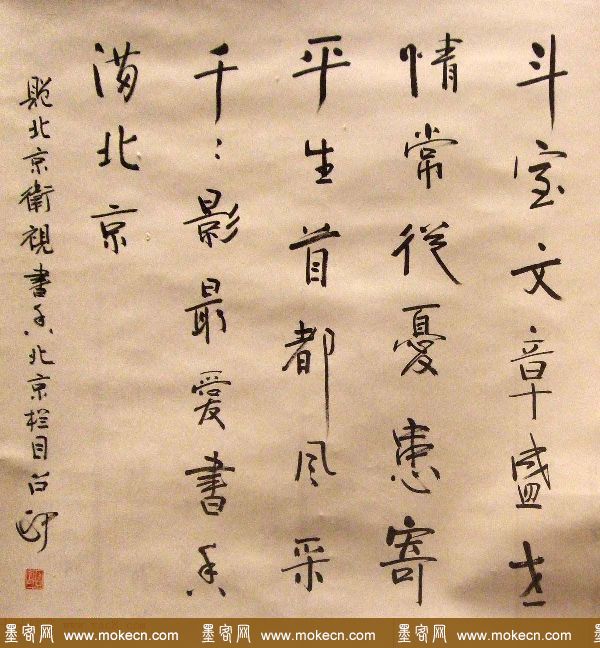 斗室文章盛世
情常從憂患寄
平生首都风采
千：影最愛書香
满北京
题北京衛視書香北京栏目
墨客网 www.mokecn.com 墨客网 www.mokecn.com 墨客网 www.mokecn.com